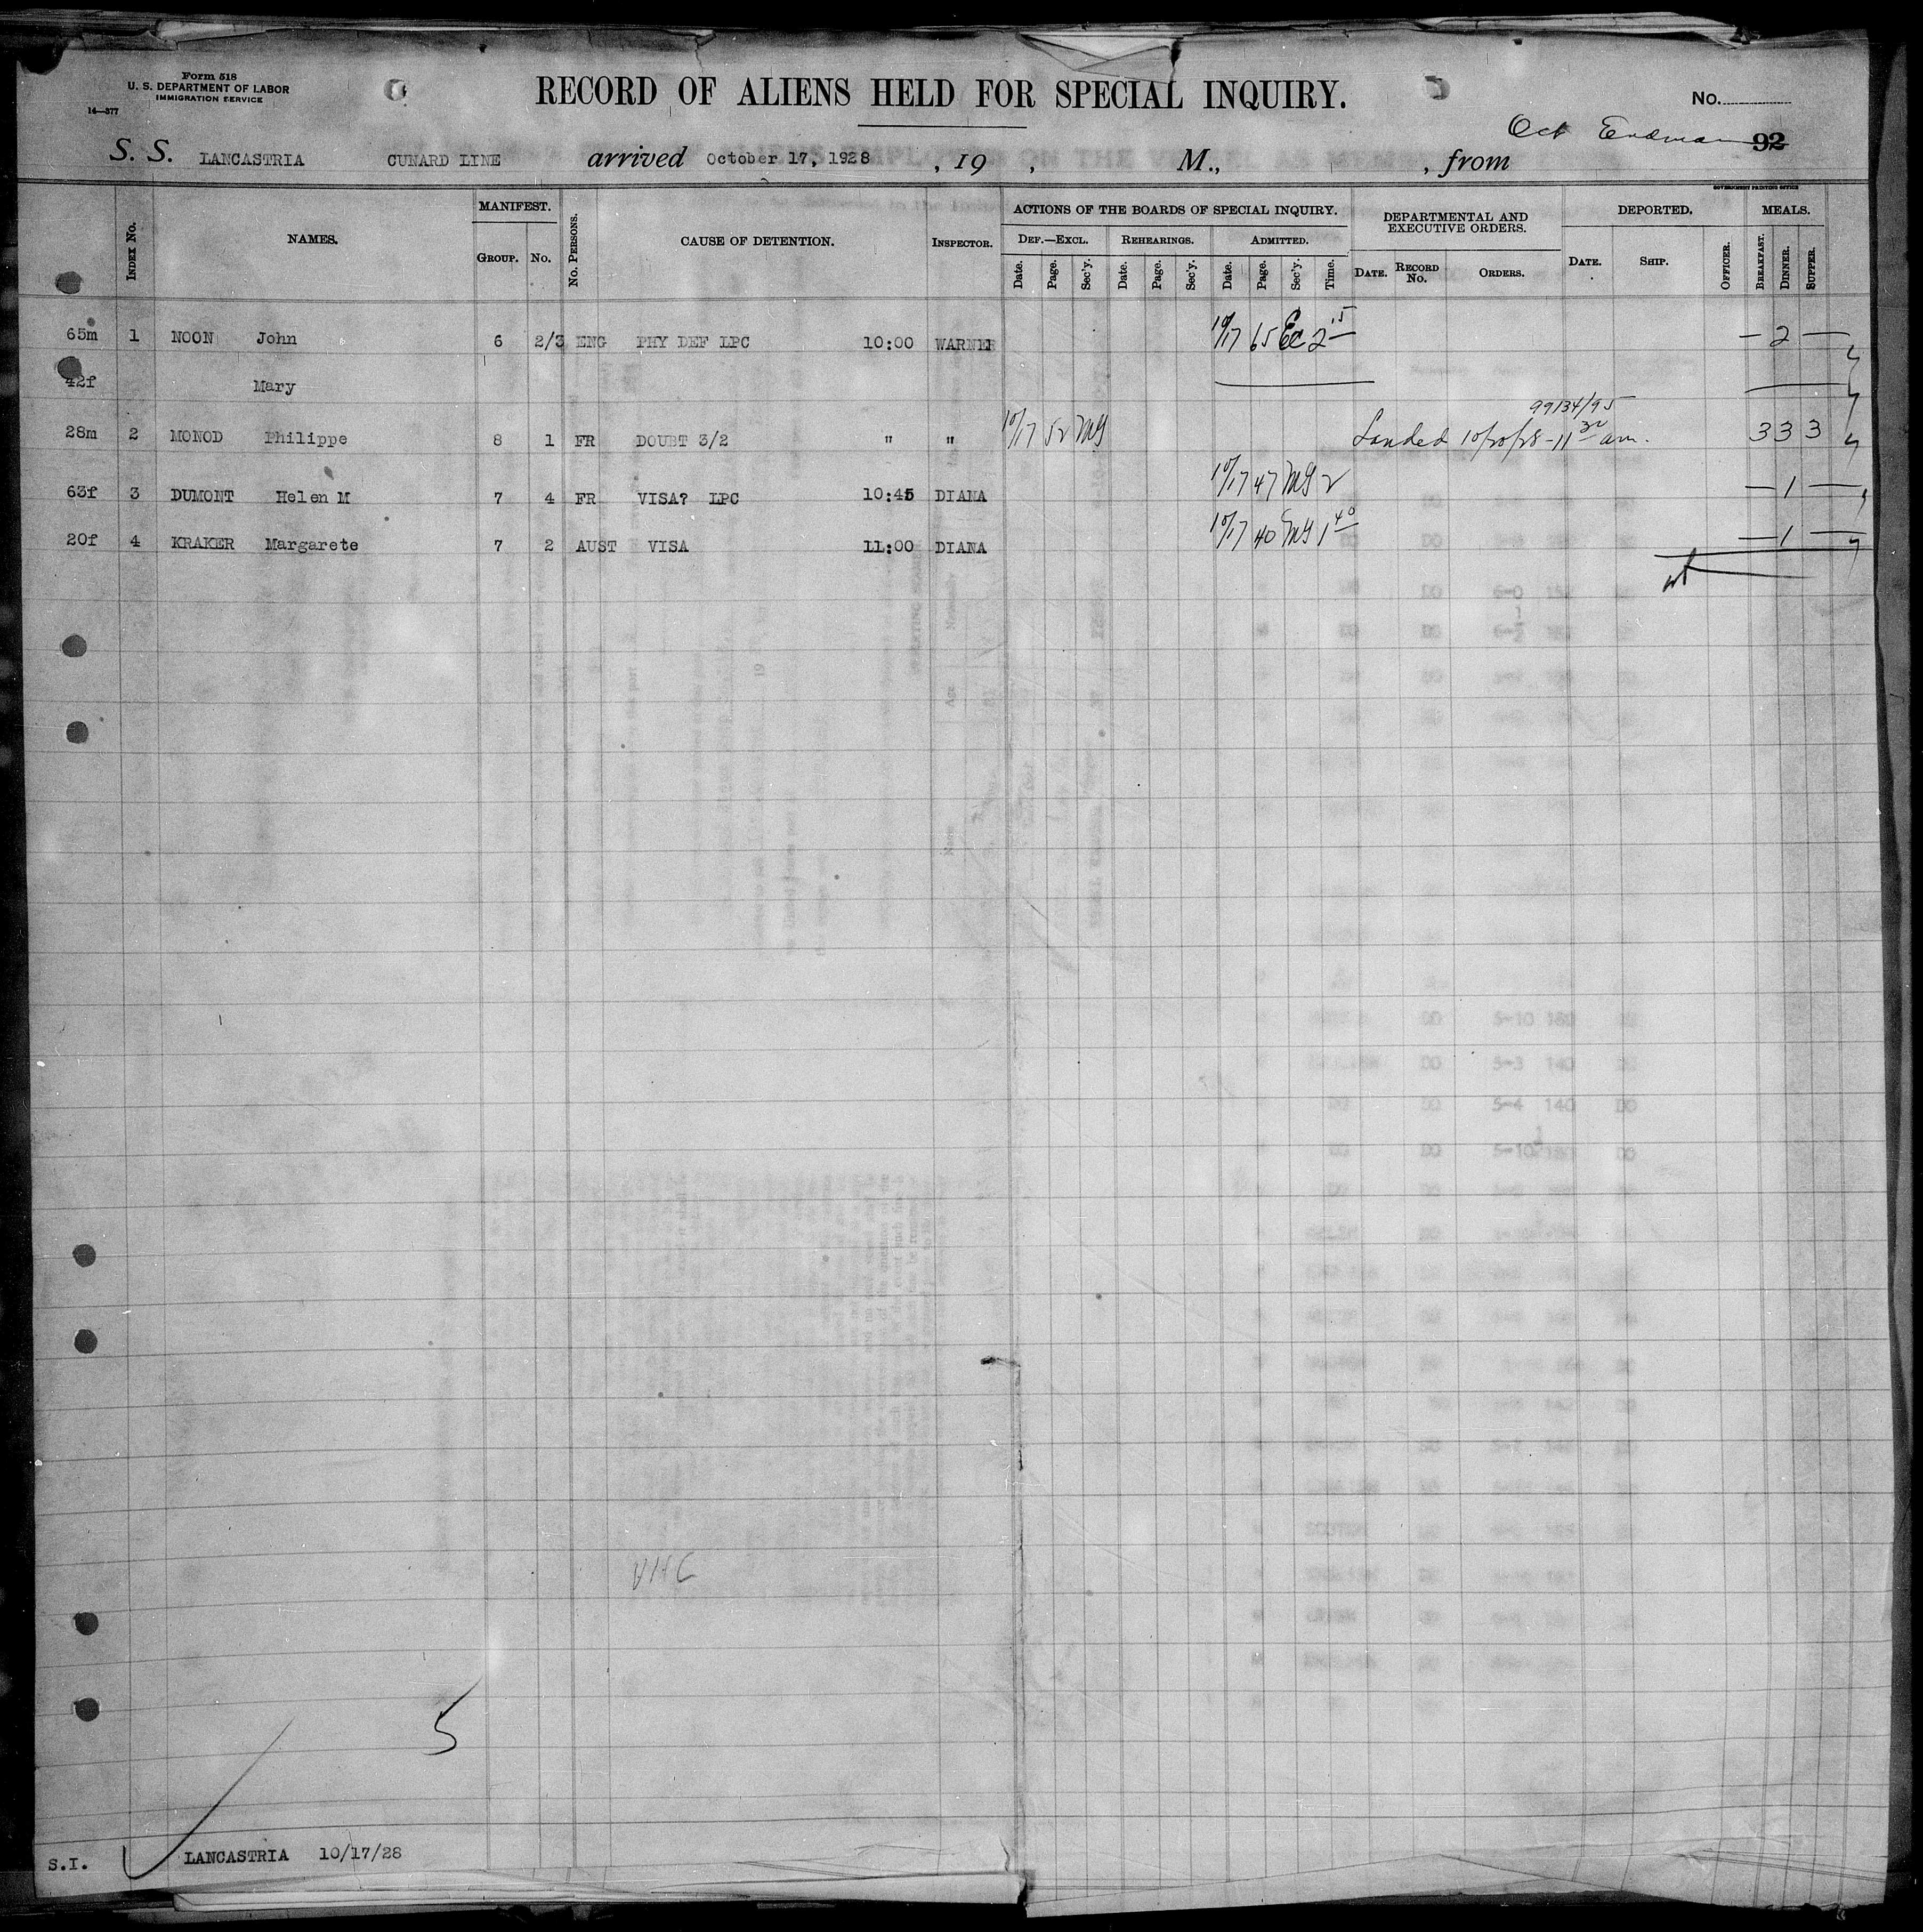 Form 518
U. S. DEPARTMENT OF LABOR
IMMIGRATION SERVICE
14—377
RECORD OF ALIENS HELD FOR SPECIAL INQUIRY.
No.
Oct 92
S. S. LANCASTRIA CUNARD LINE arrived October 17, 1928 , 19 , M., , from
GOVERNMENT PRINTING OFFICE
INDEX No. NAMES. MANIFEST. GROUP. No. No. PERSONS. CAUSE OF DETENTION. INSPECTOR.
ACTIONS OF THE BOARDS OF SPECIAL INQUIRY. DEPARTMENTAL AND EXECUTIVE ORDERS. DEPORTED. MEALS.
DEF.—EXCL. REHEARINGS. ADMITTED.
Date. Page. Sec'y. Date. Page. Sec'y. Date. Page. Sec'y. Time. DATE. RECORD No. ORDERS. DATE. SHIP. OFFICER. BREAKFAST. DINNER. SUPPER.
65m 1 NOON John 6 2/3 ENG PHY DEF LPC 10:00 WARNER 10/17 65 Ec 2 15 — 2 —
42f Mary
99134/95
28m 2 MONOD Philippe 8 1 FR DOUBT 3/2 " " 10/17 52 MG Landed 10/20/28 - 11 30 am. 3 3 3
63f 3 DUMONT Helen M 7 4 FR VISA? LPC 10:45 DIANA 10/17 47 MG 2 — 1 —
20f 4 KRAKER Margarete 7 2 AUST VISA 11:00 DIANA 10/17 40 MG 1 40 — 1 —
5
S.I. LANCASTRIA 10/17/28